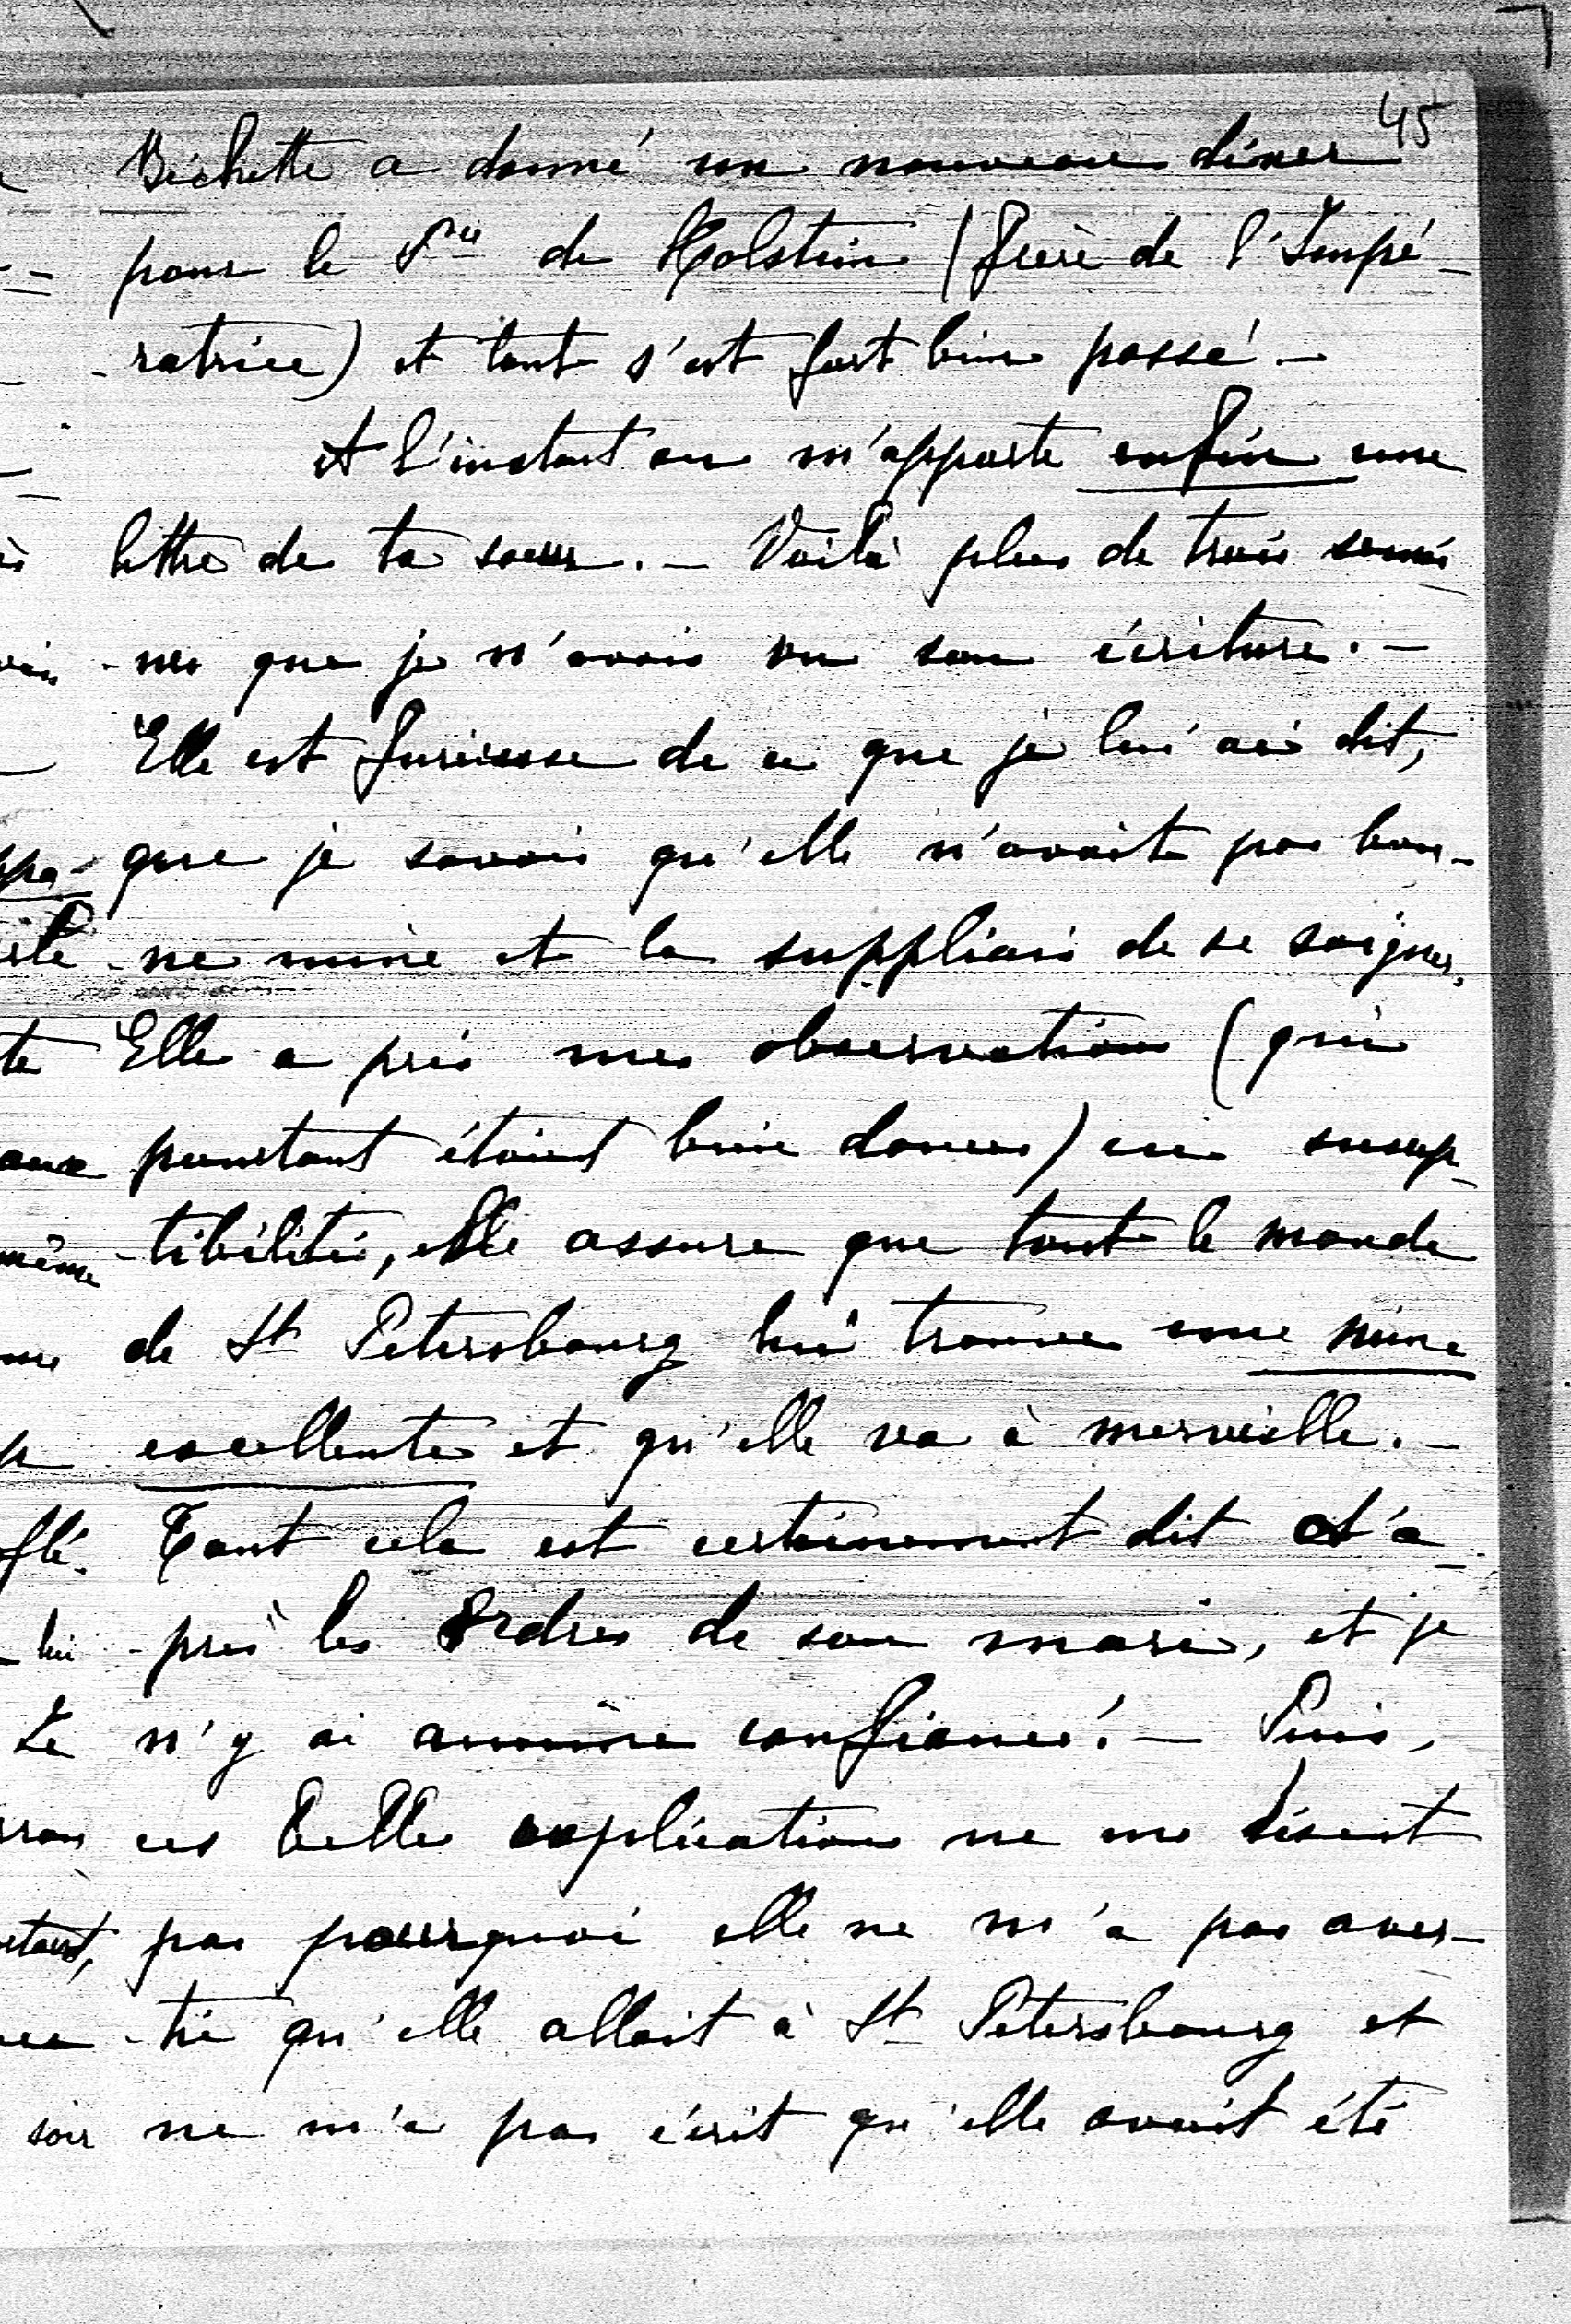 45
Bichette a donné un nouveau dîner
pour le Pce de Holstein (frère de l'Impé-
-ratrice) et tout s'est fort bien passé. -
A l'instant on m'apporte enfin une
lettre de ta soeur. - Voilà plus de trois semai
-nes que je n'avais vu son écriture. -
Elle est furieuse de ce que je lui ai dit,
que je savais qu'elle n'avait pas bon-
-ne mine et la suppliais de se soigner.
Elle a pris mes observations (qui
pourtant étaient bien douces) en suscep-
-tibilité, elle assure que tout le monde
de St Petersbourg lui trouve une mine
excellente et qu'elle va à merveille. -
Tout cela est certainement dit d'a-
-près les ordres de son mari, et je
n'y ai aucune confiance! - Puis,
ces belles explications ne me disent
pas pourquoi elle ne m'a pas aver-
-tie qu'elle allait à St Petersbourg et
ne m'a pas écrit qu'elle avait été